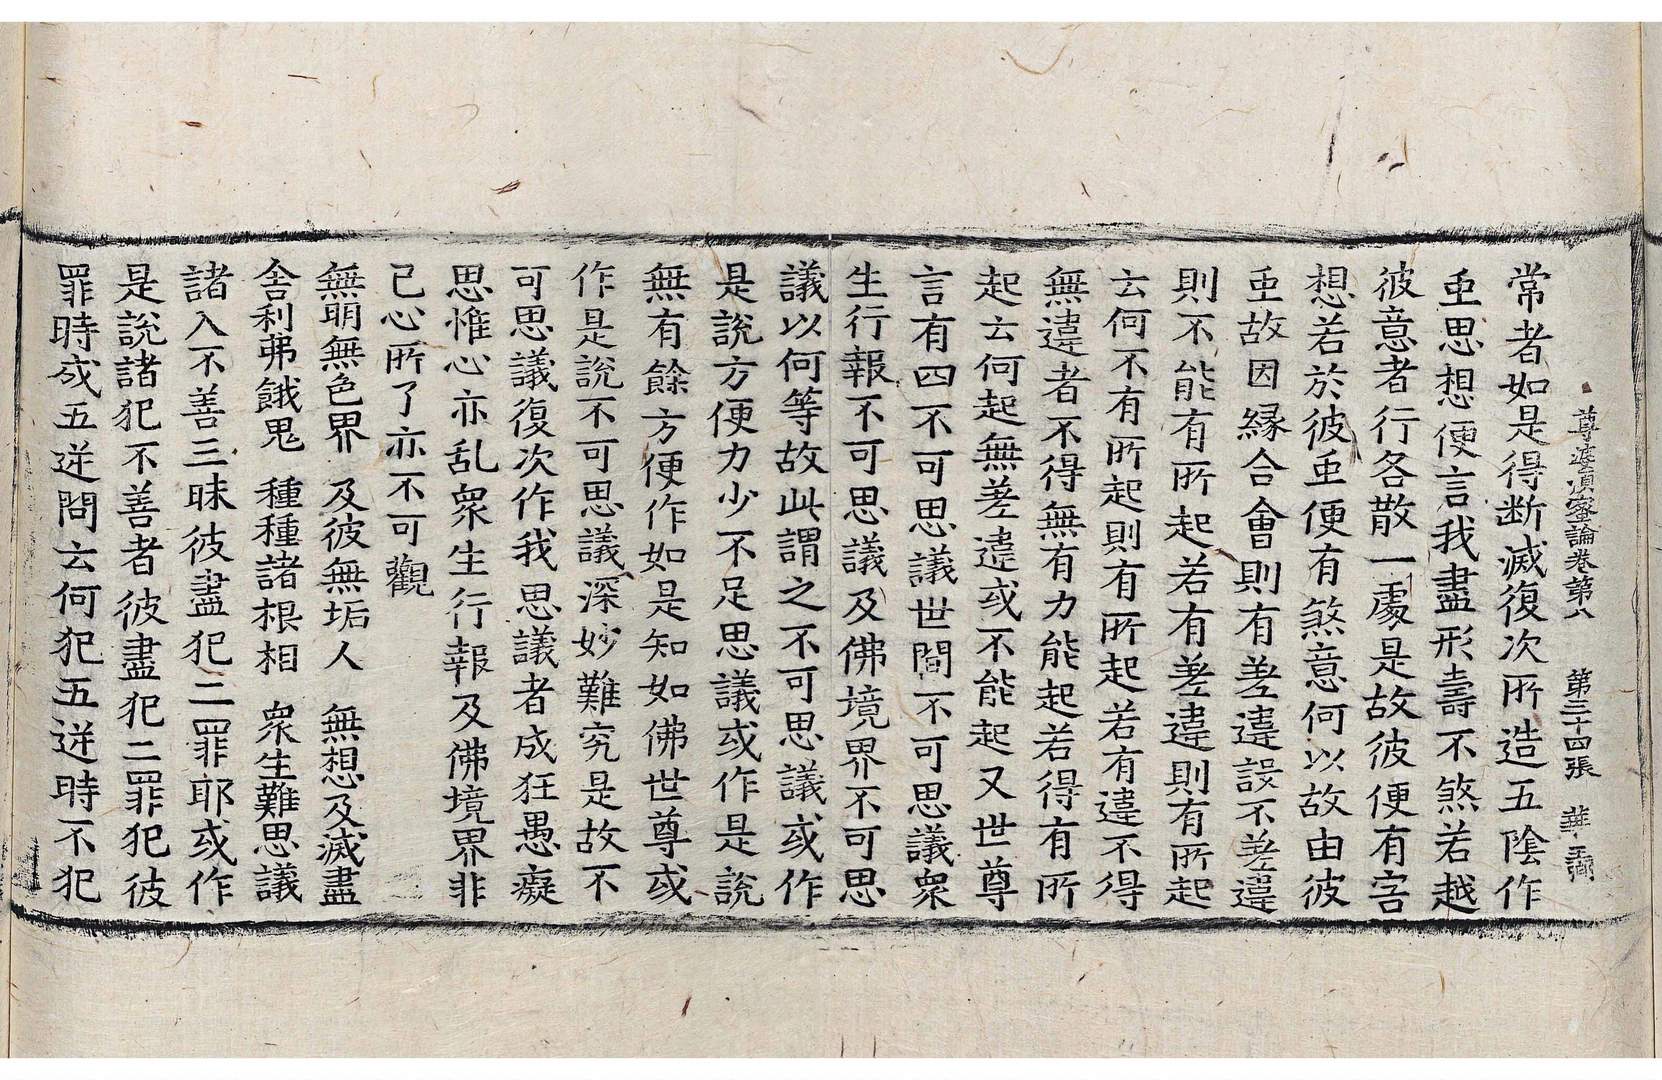 尊婆須蜜論卷第八　第三十四張
常者如是得断滅復次所造五陰作
重思想便言我盡形壽不煞若越
彼意者行各散一處是故彼便有害
想若於彼重便有煞意何以故由彼
重故因縁合會則有差違設不差違
則不能有所起若有差違則有所起
云何不有所起則有所起若有違不得
無違者不得無有力能起若得有所
起云何起無差違或不能起又世尊
言有四不可思議世間不可思議衆
生行報不可思議及佛境界不可思
議以何等故此謂之不可思議或作
是說方便力少不足思議或作是說
無有餘方便作如是知如佛世尊或
作是說不可思議深妙難究是故不
可思議復次作我思議者成狂愚癡
思惟心亦乱衆生行報及佛境界非
己心所了亦不可觀
無明無色界　及彼無垢人　無想及滅盡
舍利弗餓鬼　種種諸根相　衆生難思議
諸入不善三昧彼盡犯二罪耶或作
是說諸犯不善者彼盡犯二罪犯彼
罪時成五逆問云何犯五逆時不犯